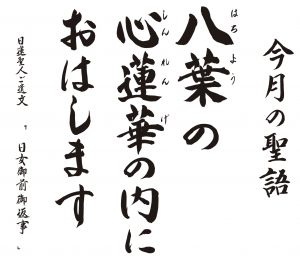 今月の聖語
八葉の
はちよう
心蓮華の内に
しんれんげ
おはします
日蓮聖人ご遺文 『日女御前御返事』